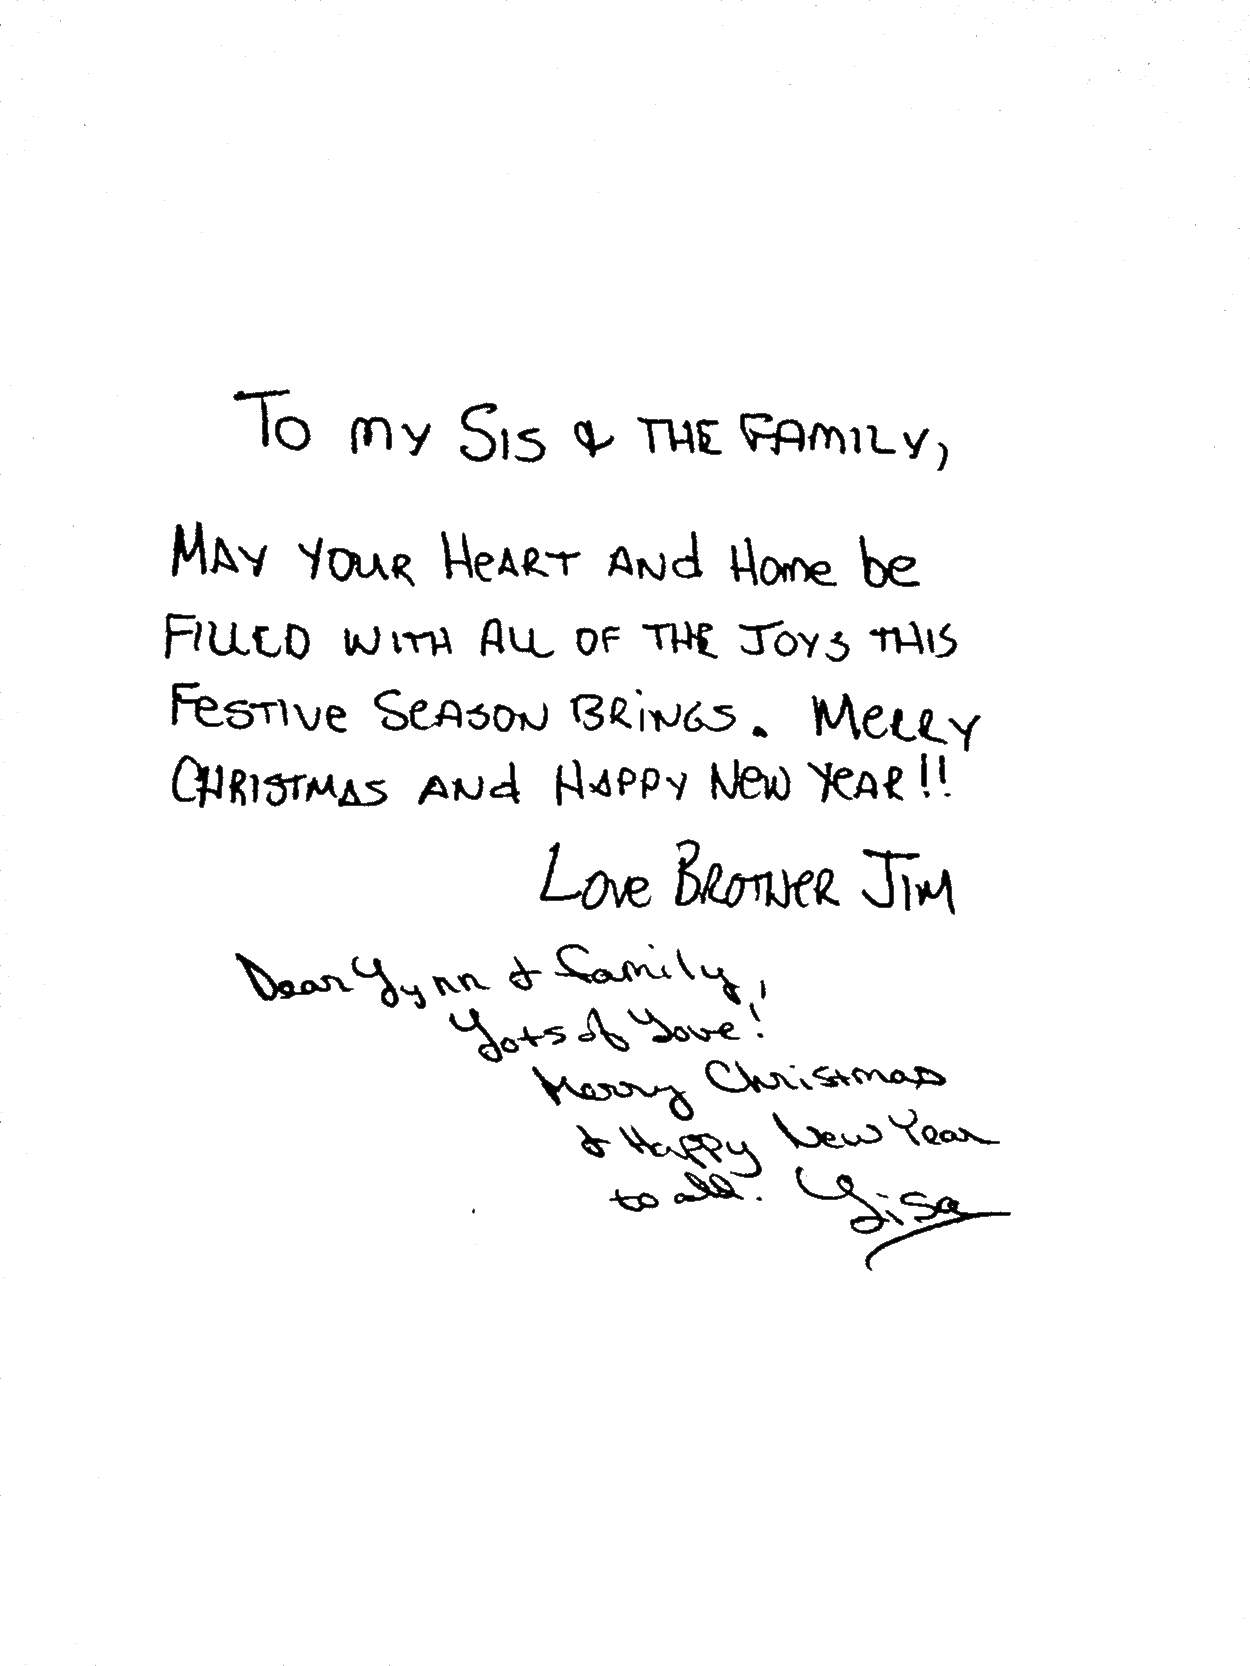 To my Sis & THE FAMILY,
MAY YOUR HeART ANd Home be
FILLED WITH ALL OF THE JOYS THIS
FeSTIVe SeASON BRiNGS. MeRRY
CHRISTMAS ANd HAPPY NeW YeAR!!
Love BROTHeR JIM
Dear Lynn & family,
Lots of Love!
Merry Christmas
& Happy New Year
to all. Lisa